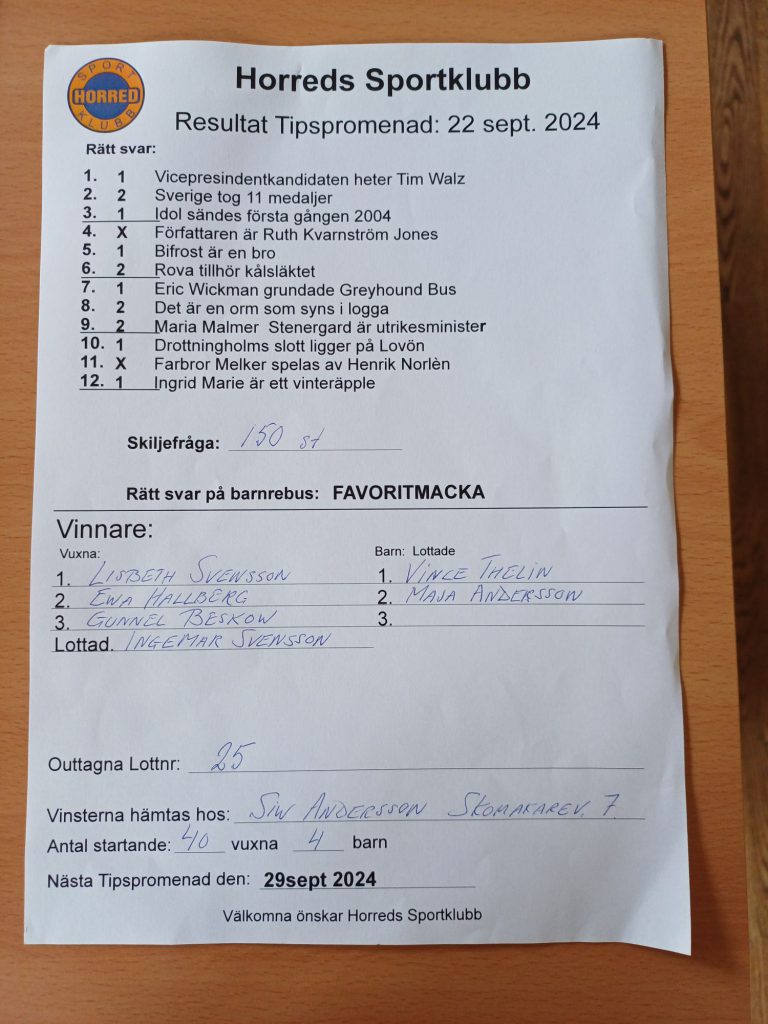 SPORT
HORRED
KLUBB
Horreds Sportklubb
Resultat Tipspromenad: 22 sept. 2024
Rätt svar:
1. 1 Vicepresindentkandidaten heter Tim Walz
2. 2 Sverige tog 11 medaljer
3. 1 Idol sändes första gången 2004
4. X Författaren är Ruth Kvarnström Jones
5. 1 Bifrost är en bro
6. 2 Rova tillhör kålsläktet
7. 1 Eric Wickman grundade Greyhound Bus
8. 2 Det är en orm som syns i logga
9. 2 Maria Malmer Stenergard är utrikesminister
10. 1 Drottningholms slott ligger på Lovön
11. X Farbror Melker spelas av Henrik Norlèn
12. 1 Ingrid Marie är ett vinteräpple
Skiljefråga: 150 st
Rätt svar på barnrebus: FAVORITMACKA
Vinnare:
Vuxna: Barn: Lottade
1. LISBETH SVENSSON 1. VINCE THELIN
2. EWA HALLBERG 2. MAJA ANDERSSON
3. GUNNEL BESKOW 3.
Lottad. INGEMAR SVENSSON
Outtagna Lottnr: 25
Vinsterna hämtas hos: SIW ANDERSSON SKOMAKAREV. 7.
Antal startande: 40 vuxna 4 barn
Nästa Tipspromenad den: 29sept 2024
Välkomna önskar Horreds Sportklubb